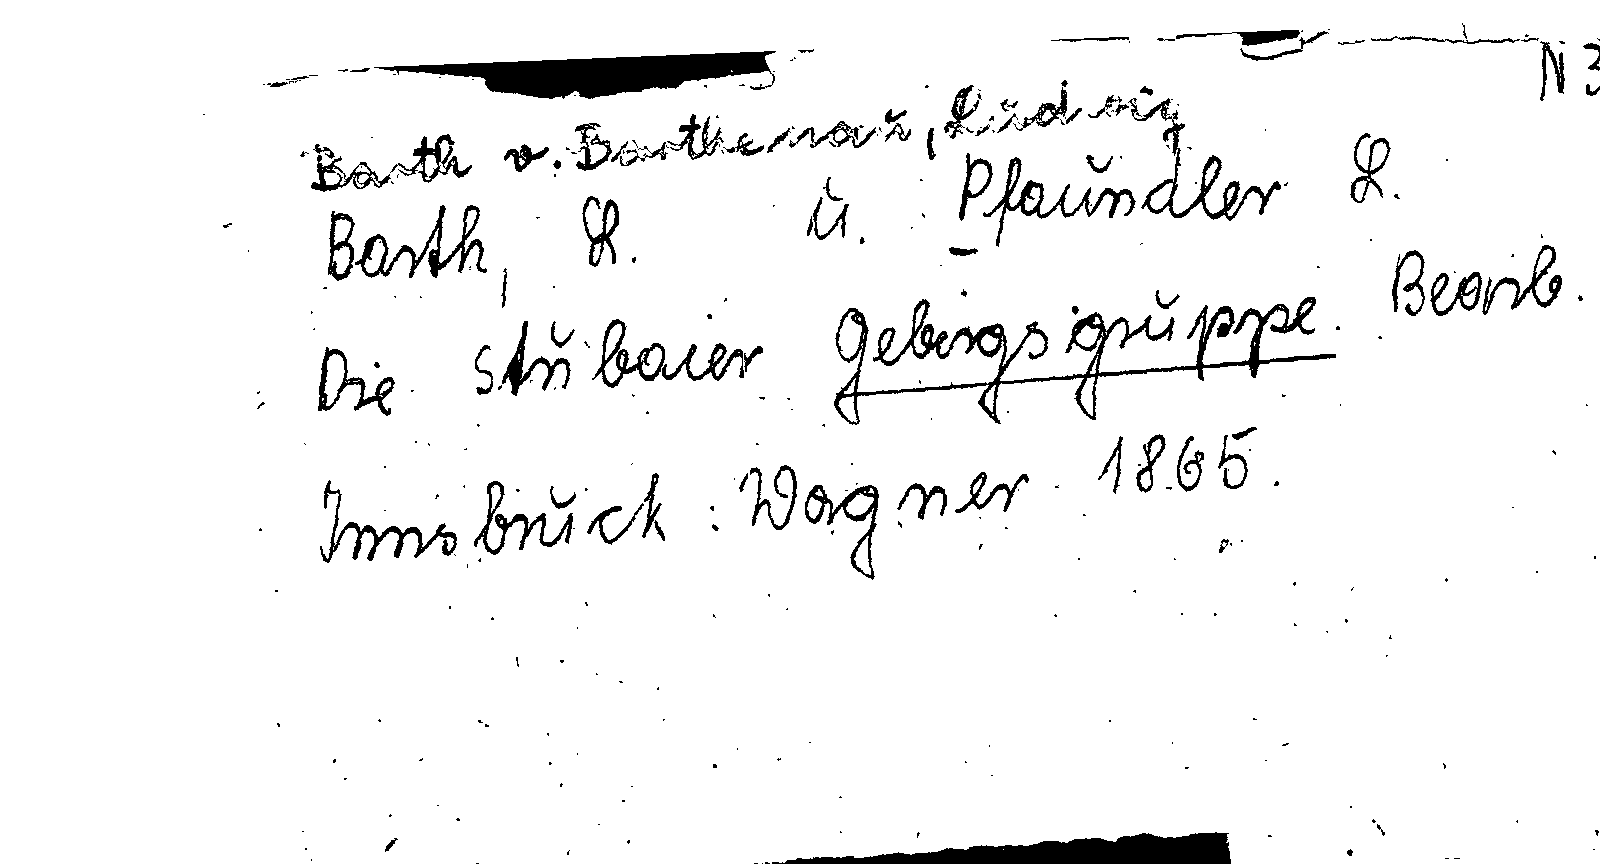 N 3
Barth v. Barthenau, Ludwig
Barth, L. u. Pfaundler L.
Die Stubaier Gebirgsgruppe. Bearb.
Innsbruck: Wagner 1865.